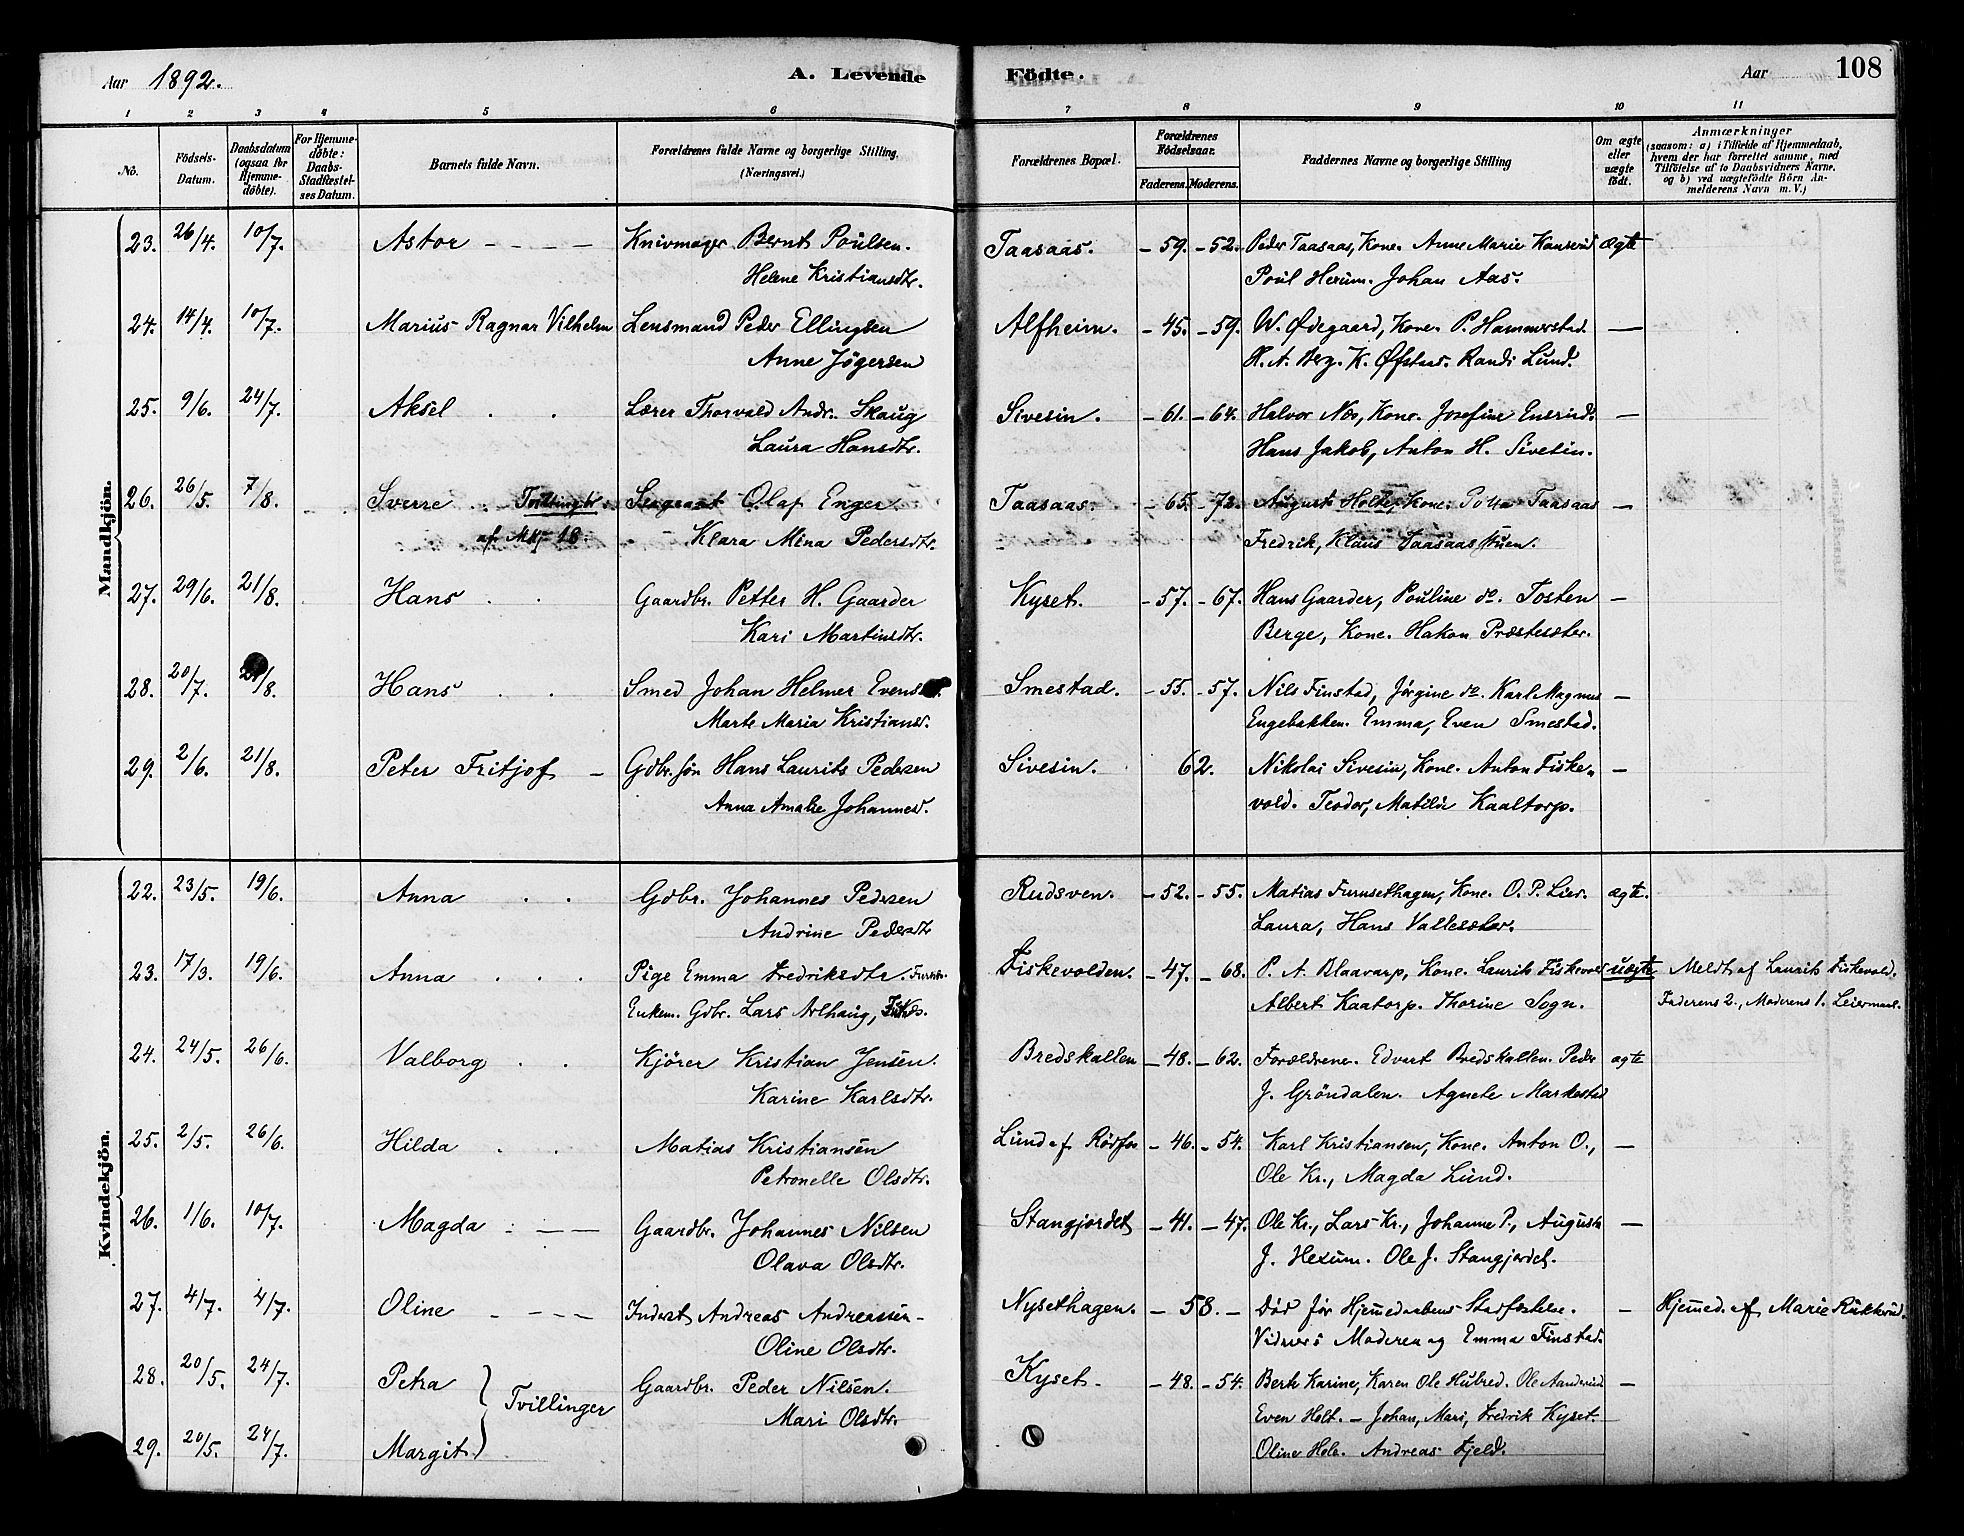 Aar 1892. A. Levende Födte. Aar 108
1 2 3 4 5 6 7 8 9 10 11
No. Födsels-Datum. Daabsdatum (ogsaa for Hjemmedöbte). For Hjemmedöbte: Daabs-Stadfæstelses Datum. Barnets fulde Navn. Forældrenes fulde Navne og borgerlige Stilling. (Næringsvei.) Forældrenes Bopæl. Forældrenes Födselsaar. Faderens. Moderens. Faddernes Navne og borgerlige Stilling Om ægte eller uægte födt. Anmærkninger (saasom: a) i Tilfælde af Hjemmedaab, hvem der har forrettet samme, med Tilföielse af to Daabsvidners Navne, og b) ved uægtefödte Börn Anmelderens Navn m. V.)
Mandkjön.
23. 26/4. 10/7. Astor - - - - Knivmager Bernt Poülsen. Taasaas. - 59. - 52. Peder Taasaas, Kone. Anne Marie ægte
Helene Kristiansdtr. Poül Hexum. Johan Aas.
24. 14/4. 10/7. Marius Ragnar Vilhelm Lensmand Peder Ellingsen Alfheim. - 45. - 59. W. Ødegaard, Kone. P. Hammerstad. —
Anne Jögersen H. A. Berg. K. Øfstaas. Randi Lund.
25. 9/6. 24/7. Aksel . . Lærer Thorvald Andr. Skaug Sivesin. - 61. - 64. Halvor Næs, Kone. Josefine Ensrud. —
Laura Hansdtr. Hans Jakob, Anton H. Sivesin.
26. 26/5. 7/8. Sverre . . Sergeant Olaf Enger. Taasaas. - 65. - 72. August Holte, Kone. Taasaas —
af Mkj 18. Klara Mina Pedersdtr. Fredrik, Klaus Taasaas
27. 29/6. 21/8. Hans . . Gaardbr. Petter H. Gaarder Kyset. - 57. - 67. Hans Gaarder, Pouline do. Tosten —
Kari Martinsdtr. Berge, Kone. Hakon Præstesæter.
28. 20/7. 21/8. Hans . . Smed Johan Helmer Evens Smestad. - 55. - 57. Nils Finstad, Jörgine do. Karl Magnus —
Marte Maria Kristiansd. Engebakken. Emma, Even Smestad.
29. 2/6. 21/8. Peter Fritjof - Gdbr. sön Hans Laurits Pedersen Sivesin. 62. Nikolai Sivesin, Kone. Anton Fiske- —
Anna Amalie Johannesd. vold. Teodor, Matilde Kaaltorp.
Kvindekjön.
22. 23/5. 19/6. Anna . . Gdbr. Johannes Pedersen Rudsven. - 52. - 55. Matias Furusethagen, Kone. O. P. Lier. ægte.
Andrine Pedersdtr Laura, Hans Vallesæter.
23. 17/3. 19/6. Anna . . . Pige Emma Fredriksdtr. Fiskevolden. - 47. - 68. P. A. Blaavarp, Kone. Laurits Fiskevold uægte Meldt af Laurits Fiskevold.
Enkem. Gdbr. Lars Albert Kaatorp. Thorine Sogn. Faderens 2., Moderens 1. Leiermaal.
24. 24/5. 26/6. Valborg . . Kjörer Kristian Jensen. Bredskallen - 48. - 62. Forældrene. Edvert Bredskallen. Peder ægte
Karine Karlsdtr. J. Gröndalen. Agnete Markestad
25. 2/5. 26/6. Hilda . . Matias Kristiansen Lund af Rödfos - 46. - 54. Karl Kristiansen, Kone. Anton O., —
Petronelle Olsdtr. Ole Kr., Magda Lund.
26. 1/6. 10/7. Magda - - - Gaardbr. Johannes Nilsen Stangjordet - 41. - 47. Ole Kr., Lars Kr., Johanne P., August —
Olava Olsdtr. J. Hexum. Ole J. Stangjordet.
27. 4/7. 4/7. Oline - - - Inderst Andreas Andreassen Nysethagen. - 58. - Död för Hjemmedaabens Stadfæstelse. — Hjemmed. af Marie
Oline Olsdtr. Vidner: Moderen og Emma Finstad.
28. 20/5. 24/7. Petra } Tvillinger Gaardbr. Peder Nilsen. Kyset. - 48. - 54. Karine, Karen Ole Hubred. Ole —
Mari Olsdtr. Even Holt. - Johan, Mari, Fredrik Kyset.
29. 20/5. 24/7. Margit Oline Hole. Andreas Fjeld.